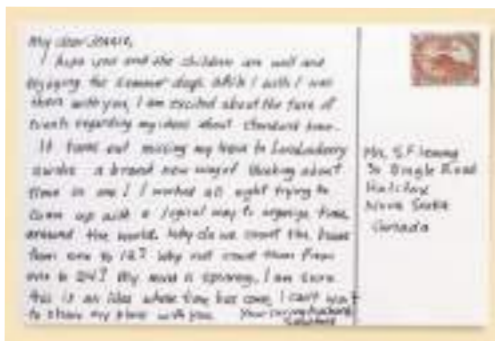 My dear Jeanie,
I hope you and the children are well and
enjoying the summer days. While I wish I was
there with you, I am excited about the turn of
events regarding my ideas about standard time.
It turns out missing my train to Londonderry
awoke a brand new way of thinking about
time in me! I worked all night trying to
come up with a logical way to organize time
around the world. Why do we count the hours
from one to 12? Why not count them from
one to 24? My mind is spinning. I am sure
this is an idea whose time has come. I can't wait
to share my plans with you. Your loving husband
Sandford
Mrs. S. Fleming
Brunswick
Halifax
Nova Scotia
Canada